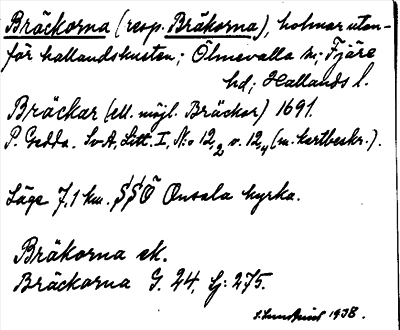 Bräckorna (resp. Bräkorna), holmar utan-
för hallandskusten; Ölmevalla sn; Fjäre
hd; Hallands l.
Bräckar (ell. möjl. Bräckor) 1691.
P. Gedda. SvA, Litt. I, No 12,2 o. 12,4 (m. kartbeskr.).
Läge 7,1 km. SSO Onsala kyrka.
Bräkorna ek.
Bräckorna G. 24, Gj: 275.
1938.